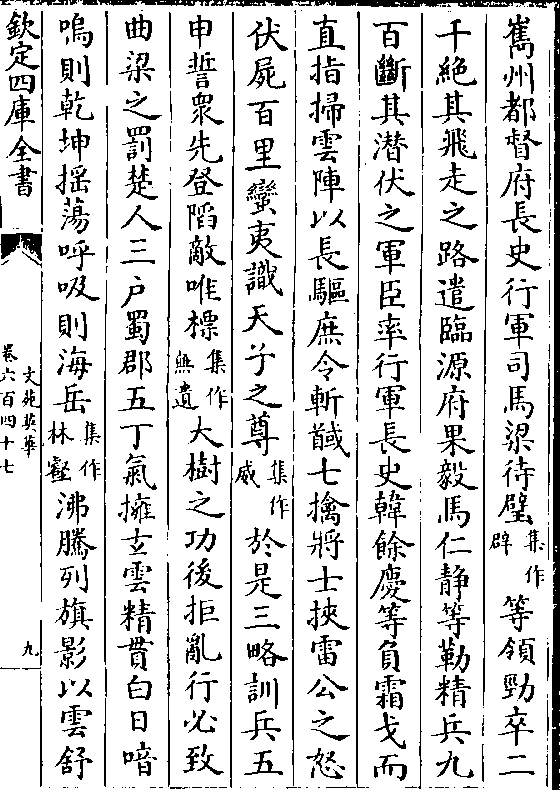 嶲州都督府長史行軍司馬梁待璧集作辟等領勁卒二
千絶其飛走之路遣臨源府果毅馬仁静等勒精兵九
百斷其潜伏之軍臣率行軍長史韓餘慶等負霜戈而
直指掃雲陣以長驅庶令斬馘七擒將士挾雷公之怒
伏屍百里蠻夷識天子之尊集作威於是三略訓兵五
申誓衆先登陷敵唯標集作無遺大樹之功後拒亂行必致
曲梁之罰楚人三户蜀郡五丁氣擁玄雲精貫白日喑
嗚則乾坤摇蕩呼吸則海岳集作林壑沸騰列旗影以雲舒
欽定四庫全書
文苑英華
卷六百四十七
九